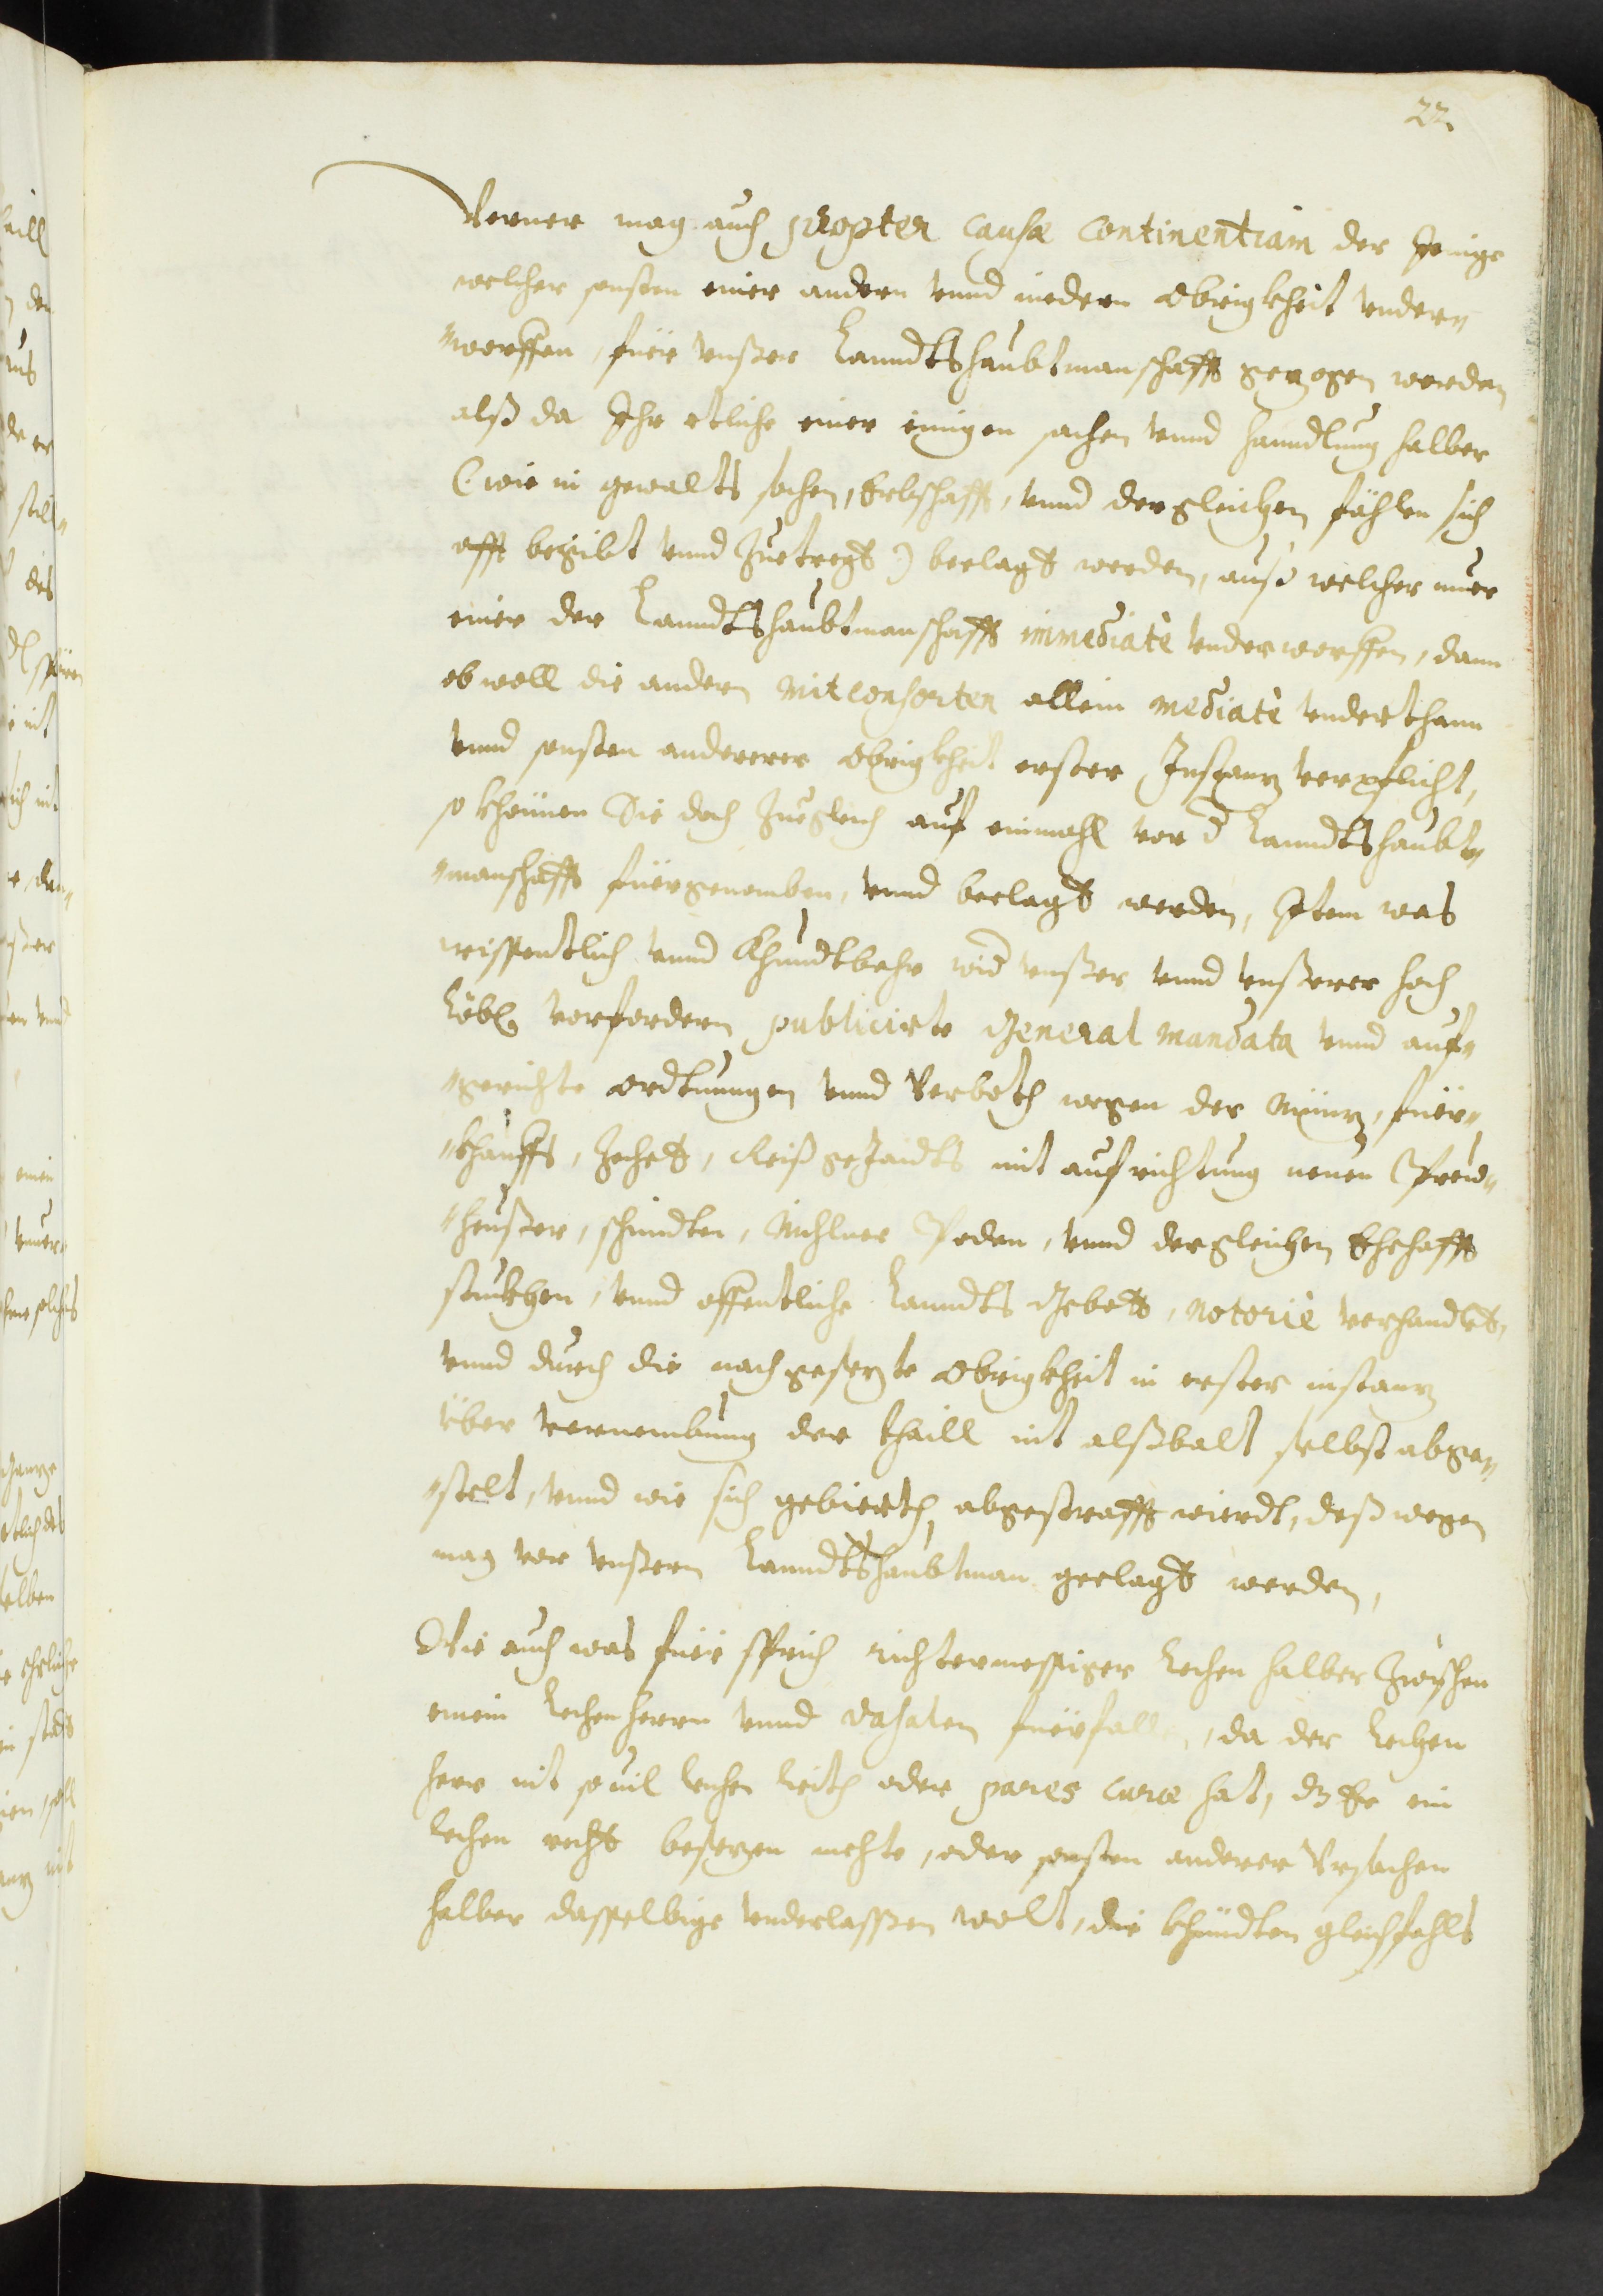 22.
Verner mag auch propter causæ continentiam der Jenige
welcher sonsten einer andern vnnd nidern Obrigkheit vnder„
„worffen, fuer vnßer Lanndtshaubtmanschafft gezogen werden
alß da Ihr etliche einer einigen sachen vnnd hanndlung halber
(wie in gewalts sachen, Erbschafft, vnnd dergleichen fählen sich
offt begibt vnnd Zuetregt) beclagt werden, auß welcher nuer
einer der Lanndtshaubtmanschafft immediatè vnderworffen, dann
obwoll die andern Mitconsorten allein mediatè vnderthann
vnnd sonsten andererer Obrigkheit erster Instanz verpflicht,
so khönnen Sie doch Zuegleich auf einmahl vor d Lanndtshaubt„
„manschafft fuergenomben, vnnd beclagt werden, Item was
wissentlich vnnd Khundtbahr wid vnßer vnnd vnßerer hoch
Löbl. vorfordern publicirte General Mandata vnnd auf„
„gerichte Ordtnungen vnnd Verboth wegen der Münz, fuer„
„khauffs, Zechet, Reißgejaidts mit aufrichtung neuen Preu„
„heußer, schmidten, Mihlner Peden, vnnd dergleichen Ehehafft
stukhen, vnnd offentliche Lanndts Gebott, notoriè verhandlet,
vnnd durch die nachgesezte Obrigkheit in erster instanz
über vernembung der thaill nit alßbalt selbst abge„
„stelt, vnnd wie sich gebierth, abgestrafft wierdt, deßwegen
mag vor vnßern Lanndtshaubtman geclagt werden,
Wie auch was fuer sprich richtermessiger Lechen halber Zwischen
einem Lechenherrn vnnd Vasalen fuerfallen, da der Lechen
herr nit souil Lechen Leith oder pares curiæ hat, dz Er ein
Lechen recht besezen mehte, oder sonsten anderer Vrsachen
halber dasselbige vnderlassen wolt, die khündten gleichfahls